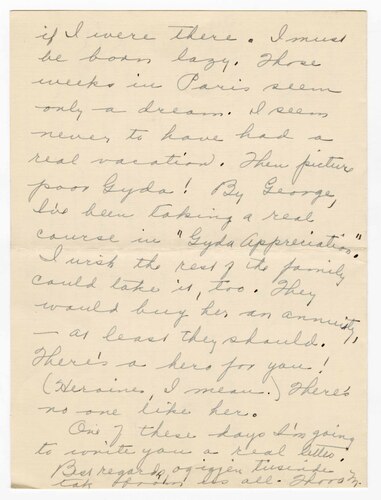 if I were there. I must
be born lazy. Those
weeks in Paris seem
only a dream. I seem
never to have had a
real vacation. Then picture
poor Gyda! By George,
I've been taking a real
course in "Gyda Appreciation."
I wish the rest of the family
could take it, too. They
would buy her an annuity,
— at least they should.
There's a hero for you!
(Heroine, I mean.) There's
no one like her.
One of these days I'm going
to write you a real letter.
Best regards, og igjen tusinde
tak